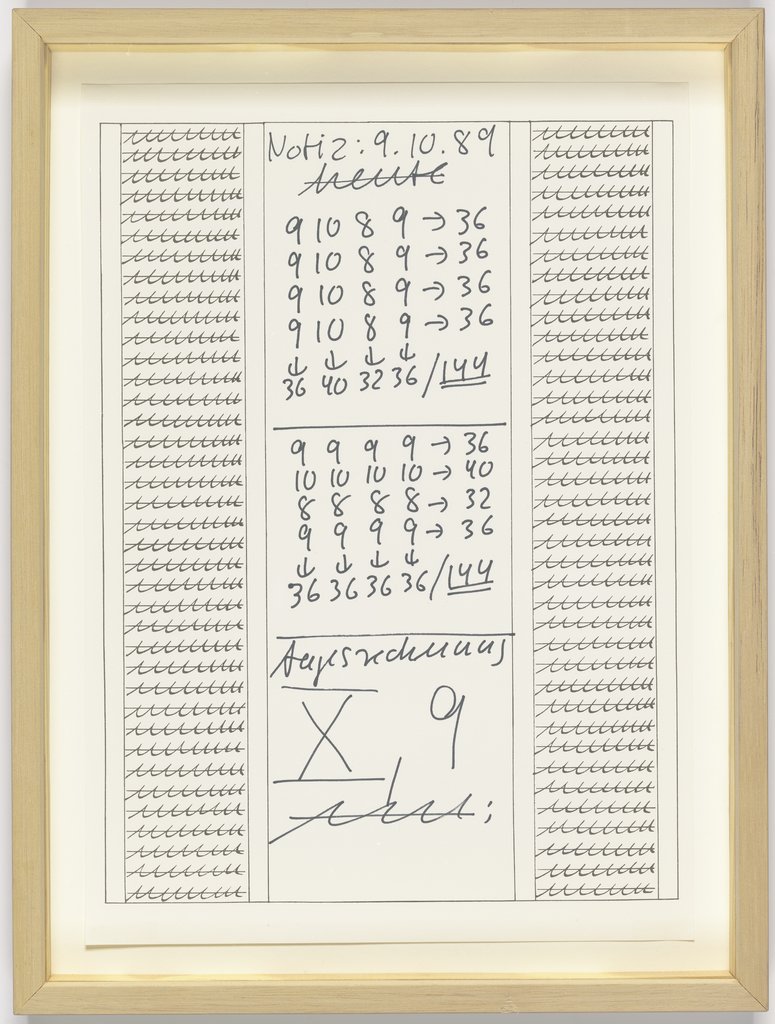 Notiz: 9.10.89
heute
9 10 8 9 → 36
9 10 8 9 → 36
9 10 8 9 → 36
9 10 8 9 → 36
↓ ↓ ↓ ↓
36 40 32 36 / 144
9 9 9 9 → 36
10 10 10 10 → 40
8 8 8 8 → 32
9 9 9 9 → 36
↓ ↓ ↓ ↓
36 36 36 36 / 144
Tagesrechnung
X, 9